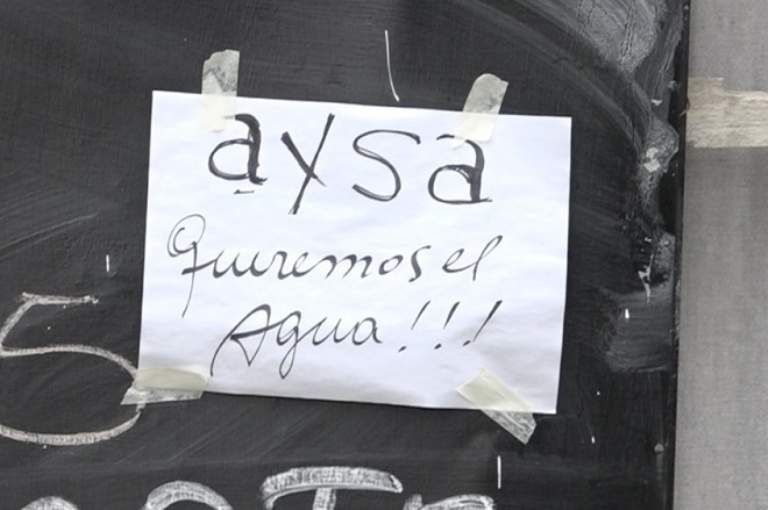 aysa
Queremos el
Agua!!!
5